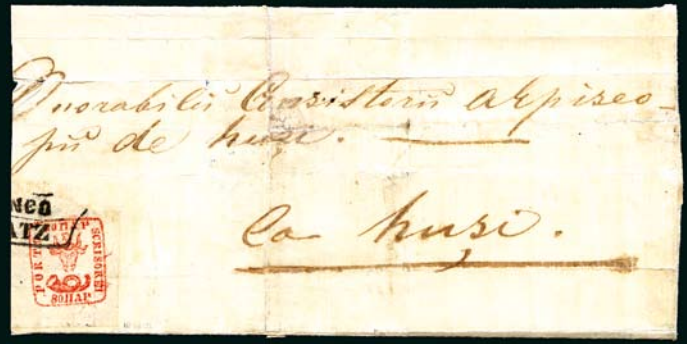 Onorabilŭ Consistoriŭ a Episco-
piĭ de husi.
La husi.
NCO
ATZ
PORTO
SCRISOREI
80ПАР